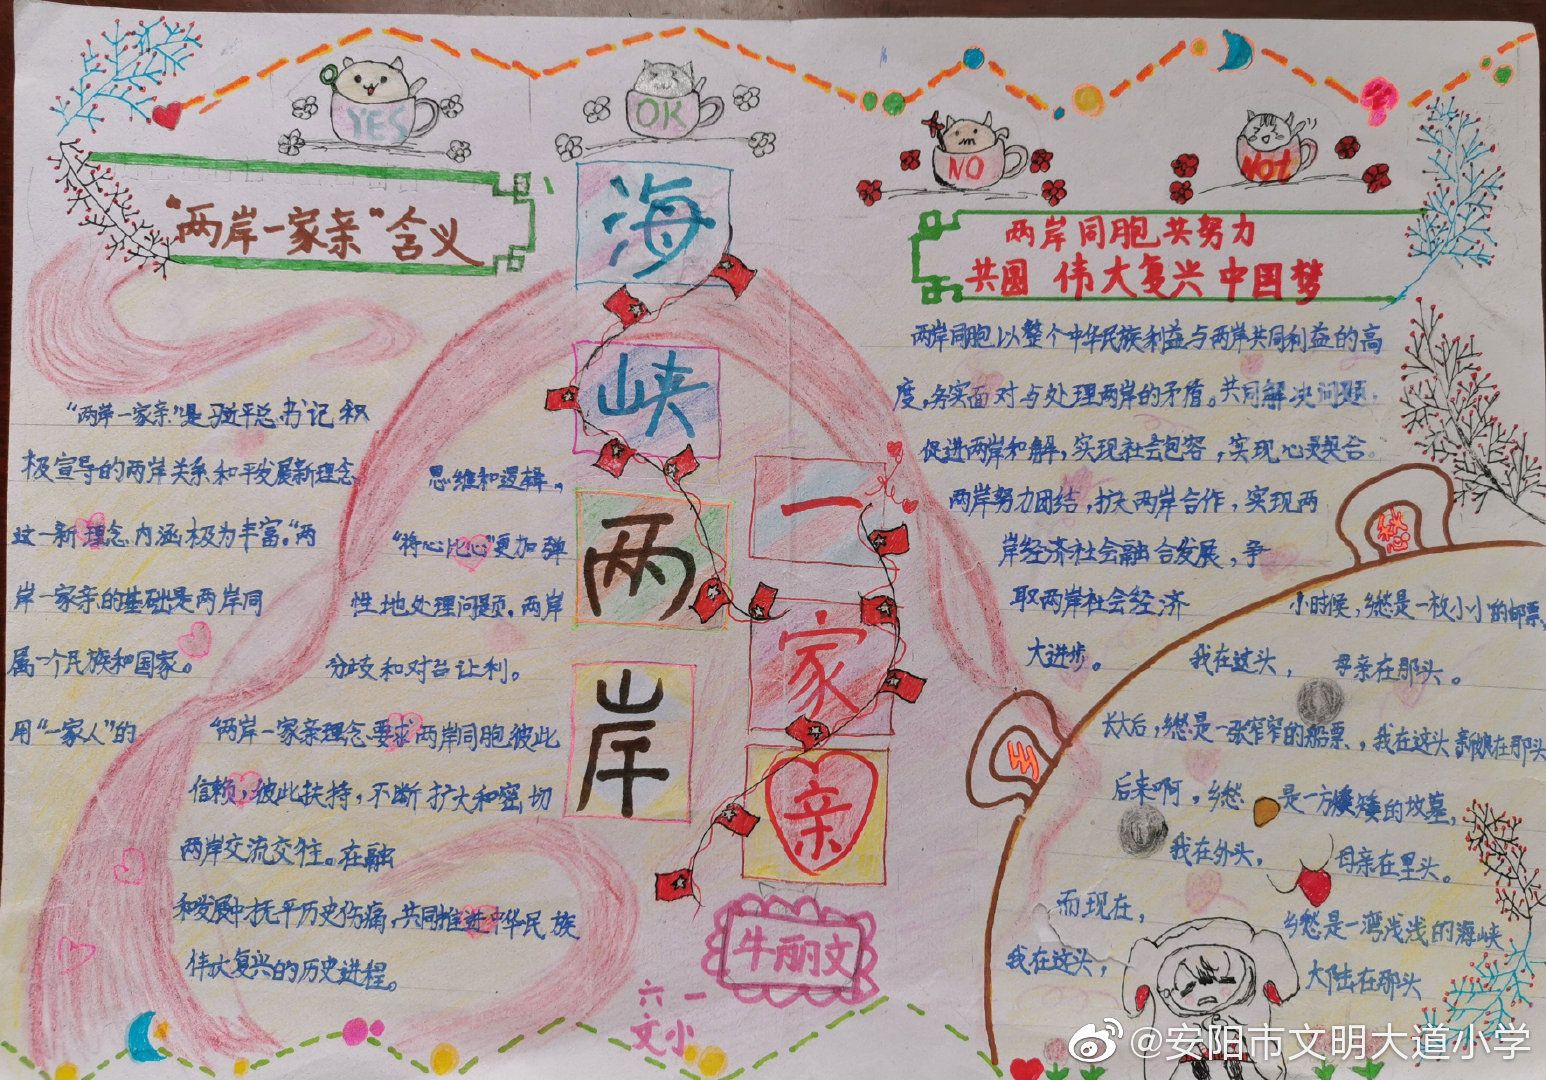 YES
OK
NO
Not
"两岸一家亲"含义
海
峡
两
岸
一
家
亲
"两岸一家亲"是习近平总书记积
极宣导的两岸关系和平发展新理念
这一新理念内涵极为丰富。"两
岸一家亲的基础是两岸同
属一个民族和国家。
用"一家人"的
思维和逻辑。
"将心比心"更加弹
性地处理问题。两岸
分歧和对台让利。
"两岸一家亲理念要求两岸同胞彼此
信赖,彼此扶持,不断扩大和密切
两岸交流交往。在融
和发展中抚平历史伤痛,共同推进中华民族
伟大复兴的历史进程。
牛丽文
六一
文小
两岸同胞共努力
共圆 伟大复兴中国梦
两岸同胞以整个中华民族利益与两岸共同利益的高
度,务实面对与处理两岸的矛盾。共同解决问题,
促进两岸和解,实现社会包容,实现心灵契合。
两岸努力团结,扩大两岸合作,实现两
岸经济社会融合发展,争
取两岸社会经济
大进步。
乡
愁
小时候,乡愁是一枚小小的邮票,
我在这头, 母亲在那头。
长大后,乡愁是一张窄窄的船票,我在这头新娘在那头
后来啊,乡愁是一方矮矮的坟墓,
我在外头, 母亲在里头。
而现在,
乡愁是一湾浅浅的海峡
我在这头,
大陆在那头
@安阳市文明大道小学